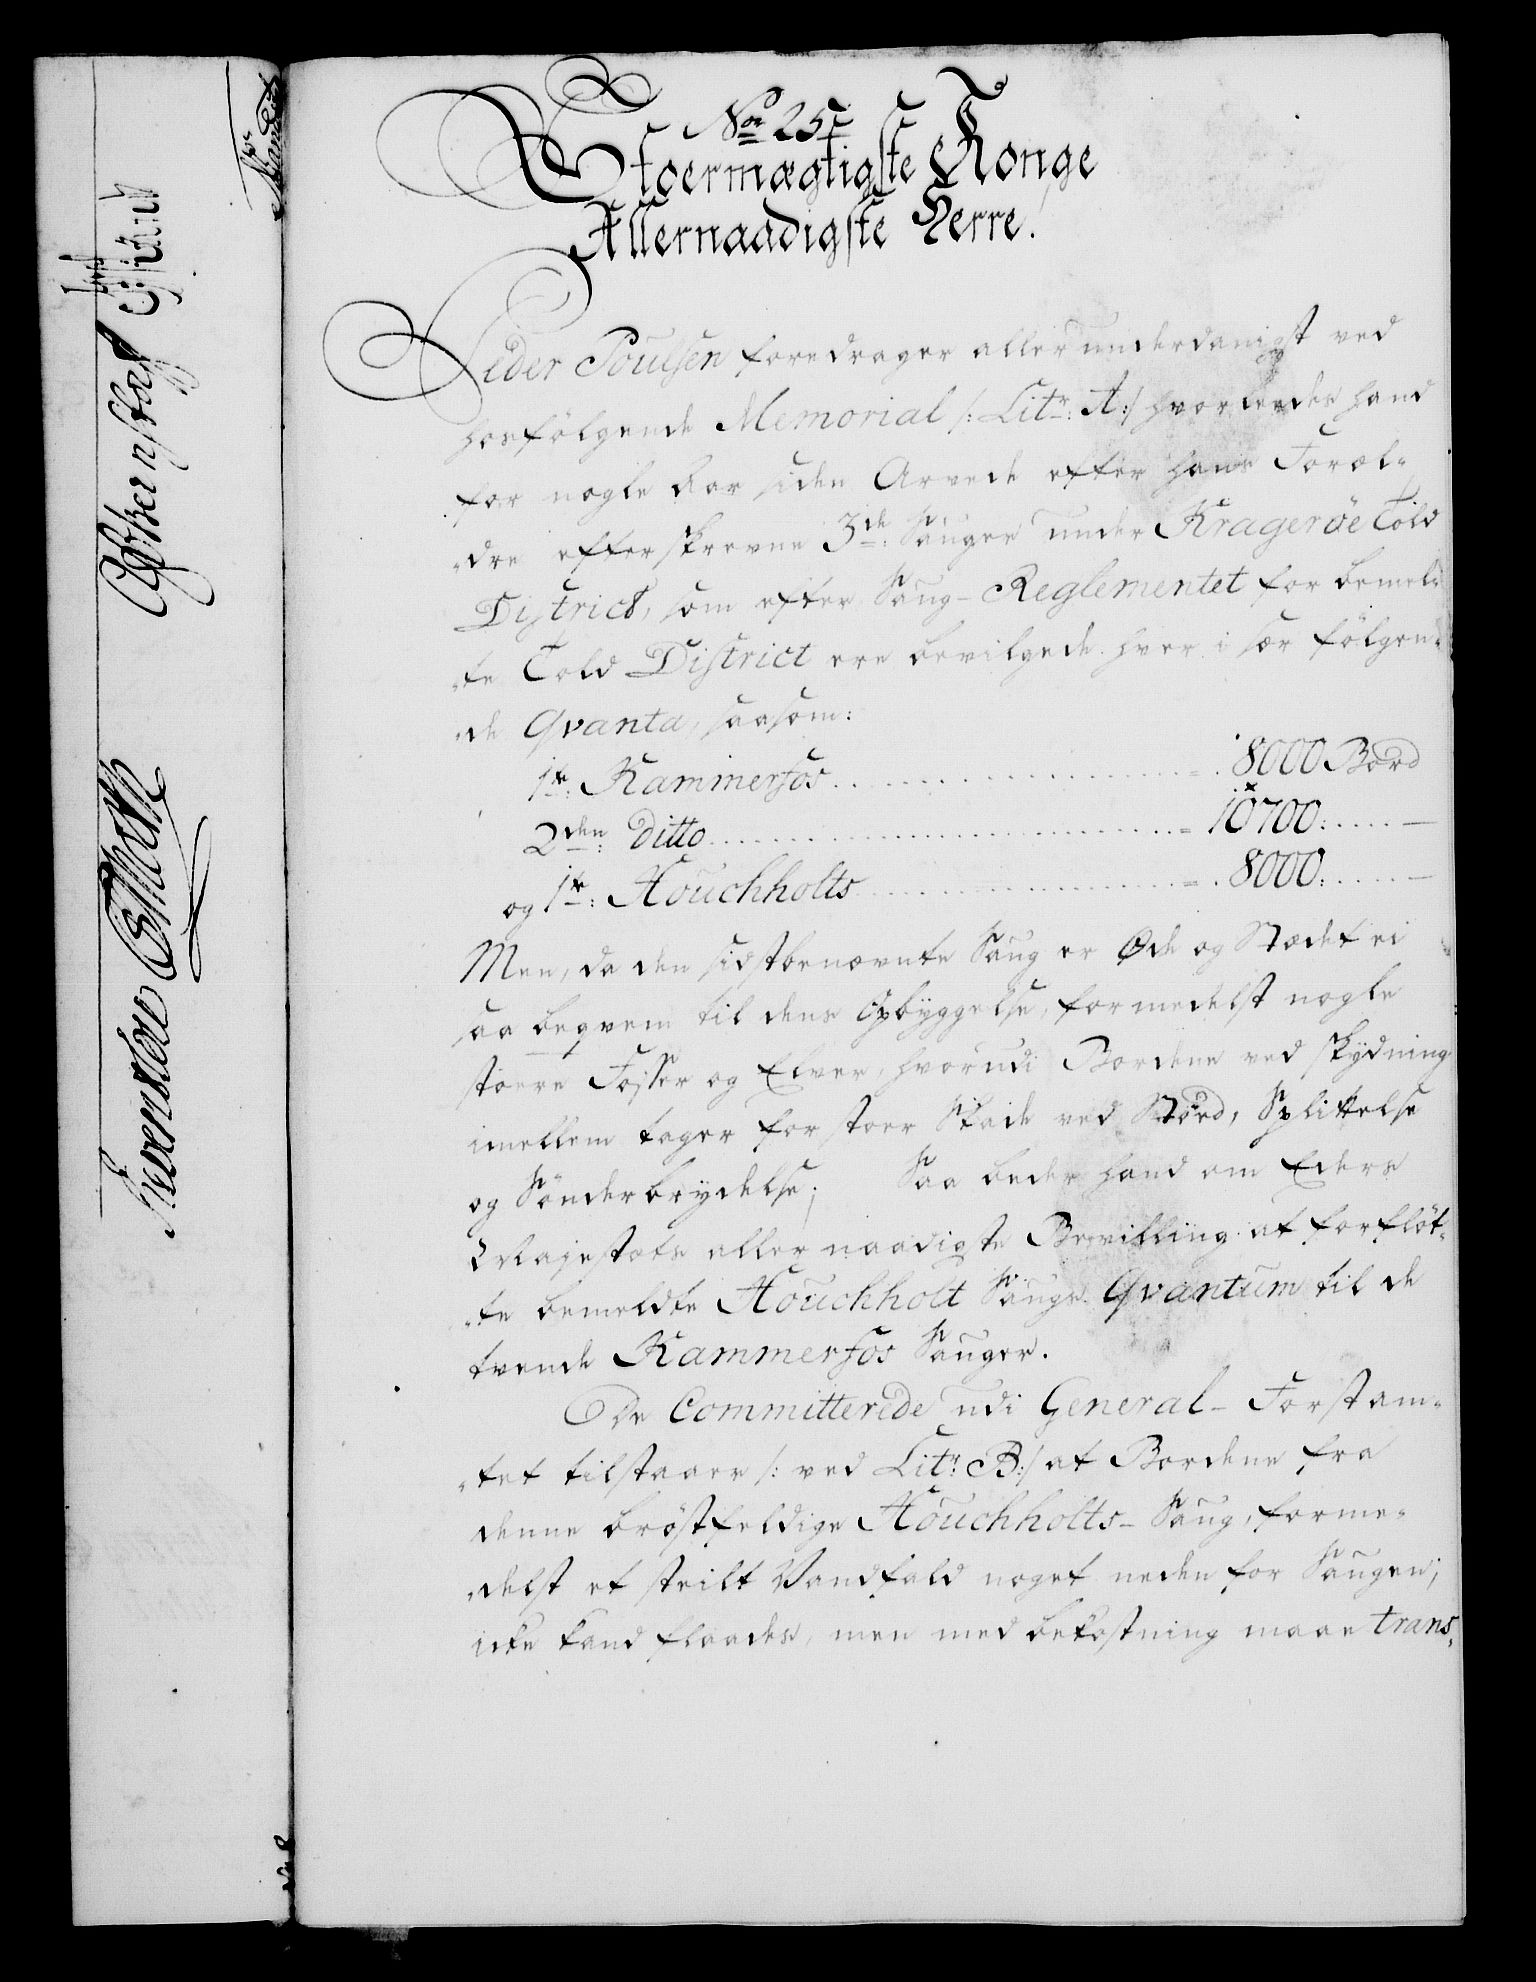 No 25
Stoermægtigste Konge
Allernaadigste Herre!
Peder Poulsen foredrager allerunderdanigst ved
hosfölgende Memorial /: Litr: A:/ hvorledes hand
for nogle Aar siden Arvede efter hans Foræl-
dre efterskrevne 3de: Sauger under Krageröe Told
District, som efter Saug-Reglementet for bemel-
te Told District ere bevilgede hver i sær fölgen-
de Qvanta, saasom:
1te: Kammerfos . . . . . 8000 Bord
2den: Ditto . . . . . 10700: . . . . —
og 1te: Houchholts . . . . . 8000: . . . . —
Men, da den sidstbenævnte Saug er Öde og Stædet ei
saa beqvem til dens Opbyggelse, formedelst nogle
stoere Fosser og Elver, hvorudi Bordene ved skydning
imellem tager for stoer Skade ved Stöd, Splittelse
og Sönderbrydelse; Saa beder hand om Eders
Majestæts allernaadigste Bevilling at forflöt-
te bemeldte Houchholt Saugs Qvantum til de
tvende Kammerfos Sauger.
De Committerede udi General-Forstam-
tet tilstaaer /: ved Litr: B:/ at Bordene fra
denne bröstfeldige Houchholts-Saug, forme-
delst et steilt Vandfald noget neden for Saugen,
icke kand flaades, men med bekostning maae trans-